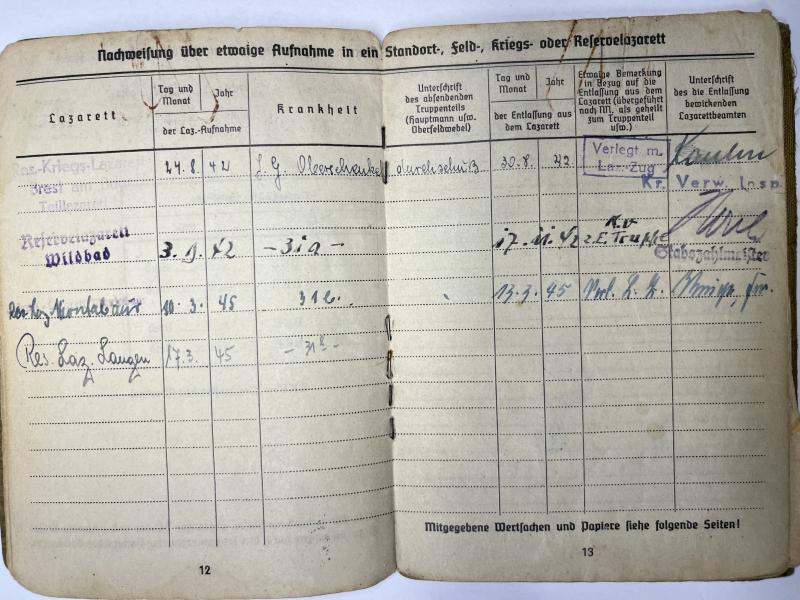 Nachweisung über etwaige Aufnahme in ein Standort-, Feld-, Kriegs- oder Reservelazarett
Lazarett
Tag und Monat
Jahr
der Laz.-Aufnahme
Krankheit
Unterschrift
des absendenden
Truppenteils
(Hauptmann usw.
Oberfeldwebel)
Tag und
Monat
Jahr
der Entlassung aus
dem Lazarett
Etwaige Bemerkung
in Bezug auf die
Entlassung aus dem
Lazarett (übergeführt
nach NN, als geheilt
zum Truppenteil
usw.)
Unterschrift
des die Entlassung
bewirkenden
Lazarettbeamten
Res.-Kriegs-Lazarett
Brest
Teillazarett
24.8. 42 Oberschenkel durchschuß 30.8. 42
Verlegt m.
Laz.-Zug
Kr. Verw. Insp.
Reservelazarett
Wildbad
3. 9. 42 - 31a - 17. 11. 42 k.v. z. E. Truppe
Stabszahlmeister
Res. Laz. Montabaur 10. 3. 45 31b. 13. 3. 45
Res. Laz. Langen 17.3. 45 - 31b -
Mitgegebene Wertsachen und Papiere siehe folgende Seiten!
12
13